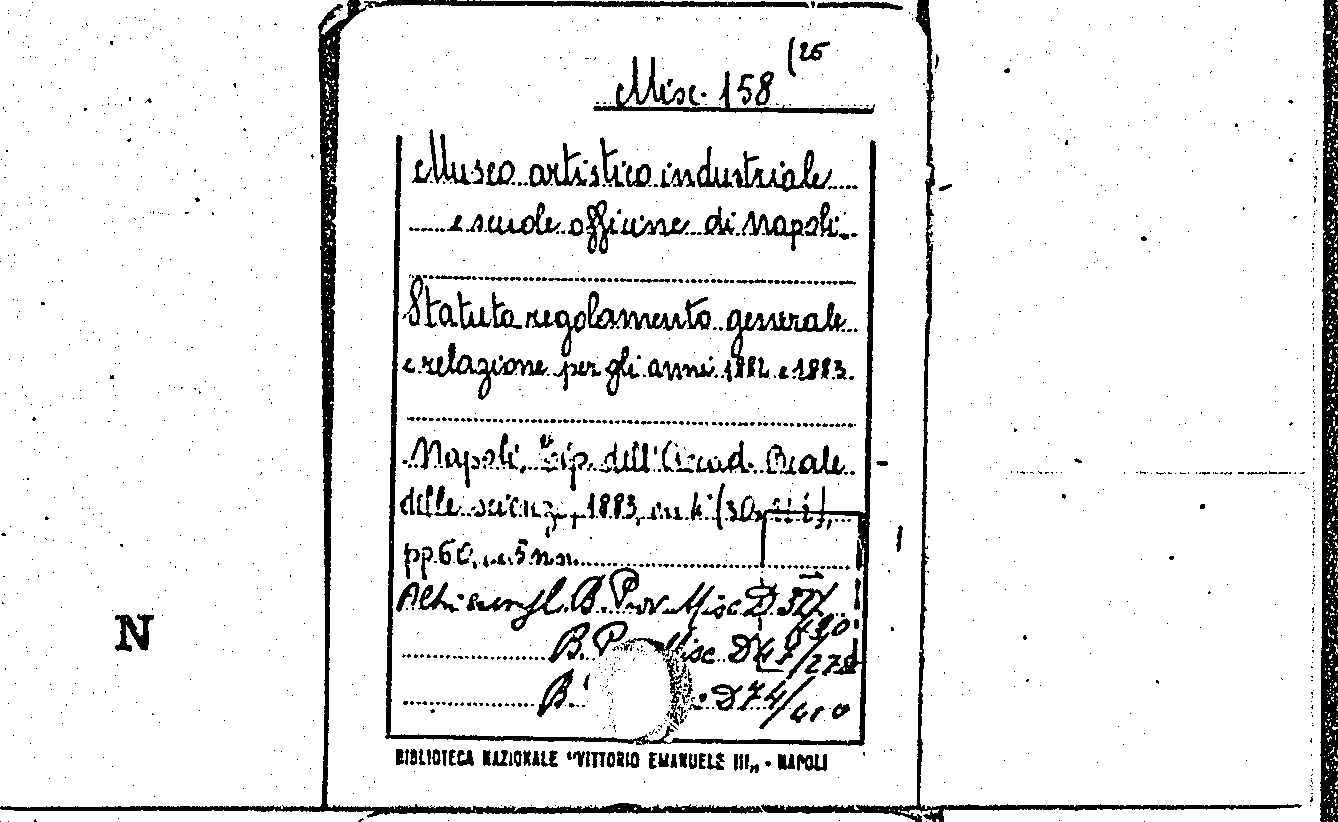 (25
Misc. 158
Museo artistico industriale
e scuole officine di Napoli.
Statuto regolamento generale
e relazione per gli anni 1882 e 1883.
Napoli, Tip. dell'Accad. Reale
delle scienze, 1883, in 4° (30
pp. 60, 5 nn.
Altri esempl. B. Prov. Misc D 
B. P Misc D 47/278
B. D 74/610
BIBLIOTECA NAZIONALE "VITTORIO EMANUELE III„ - NAPOLI
N